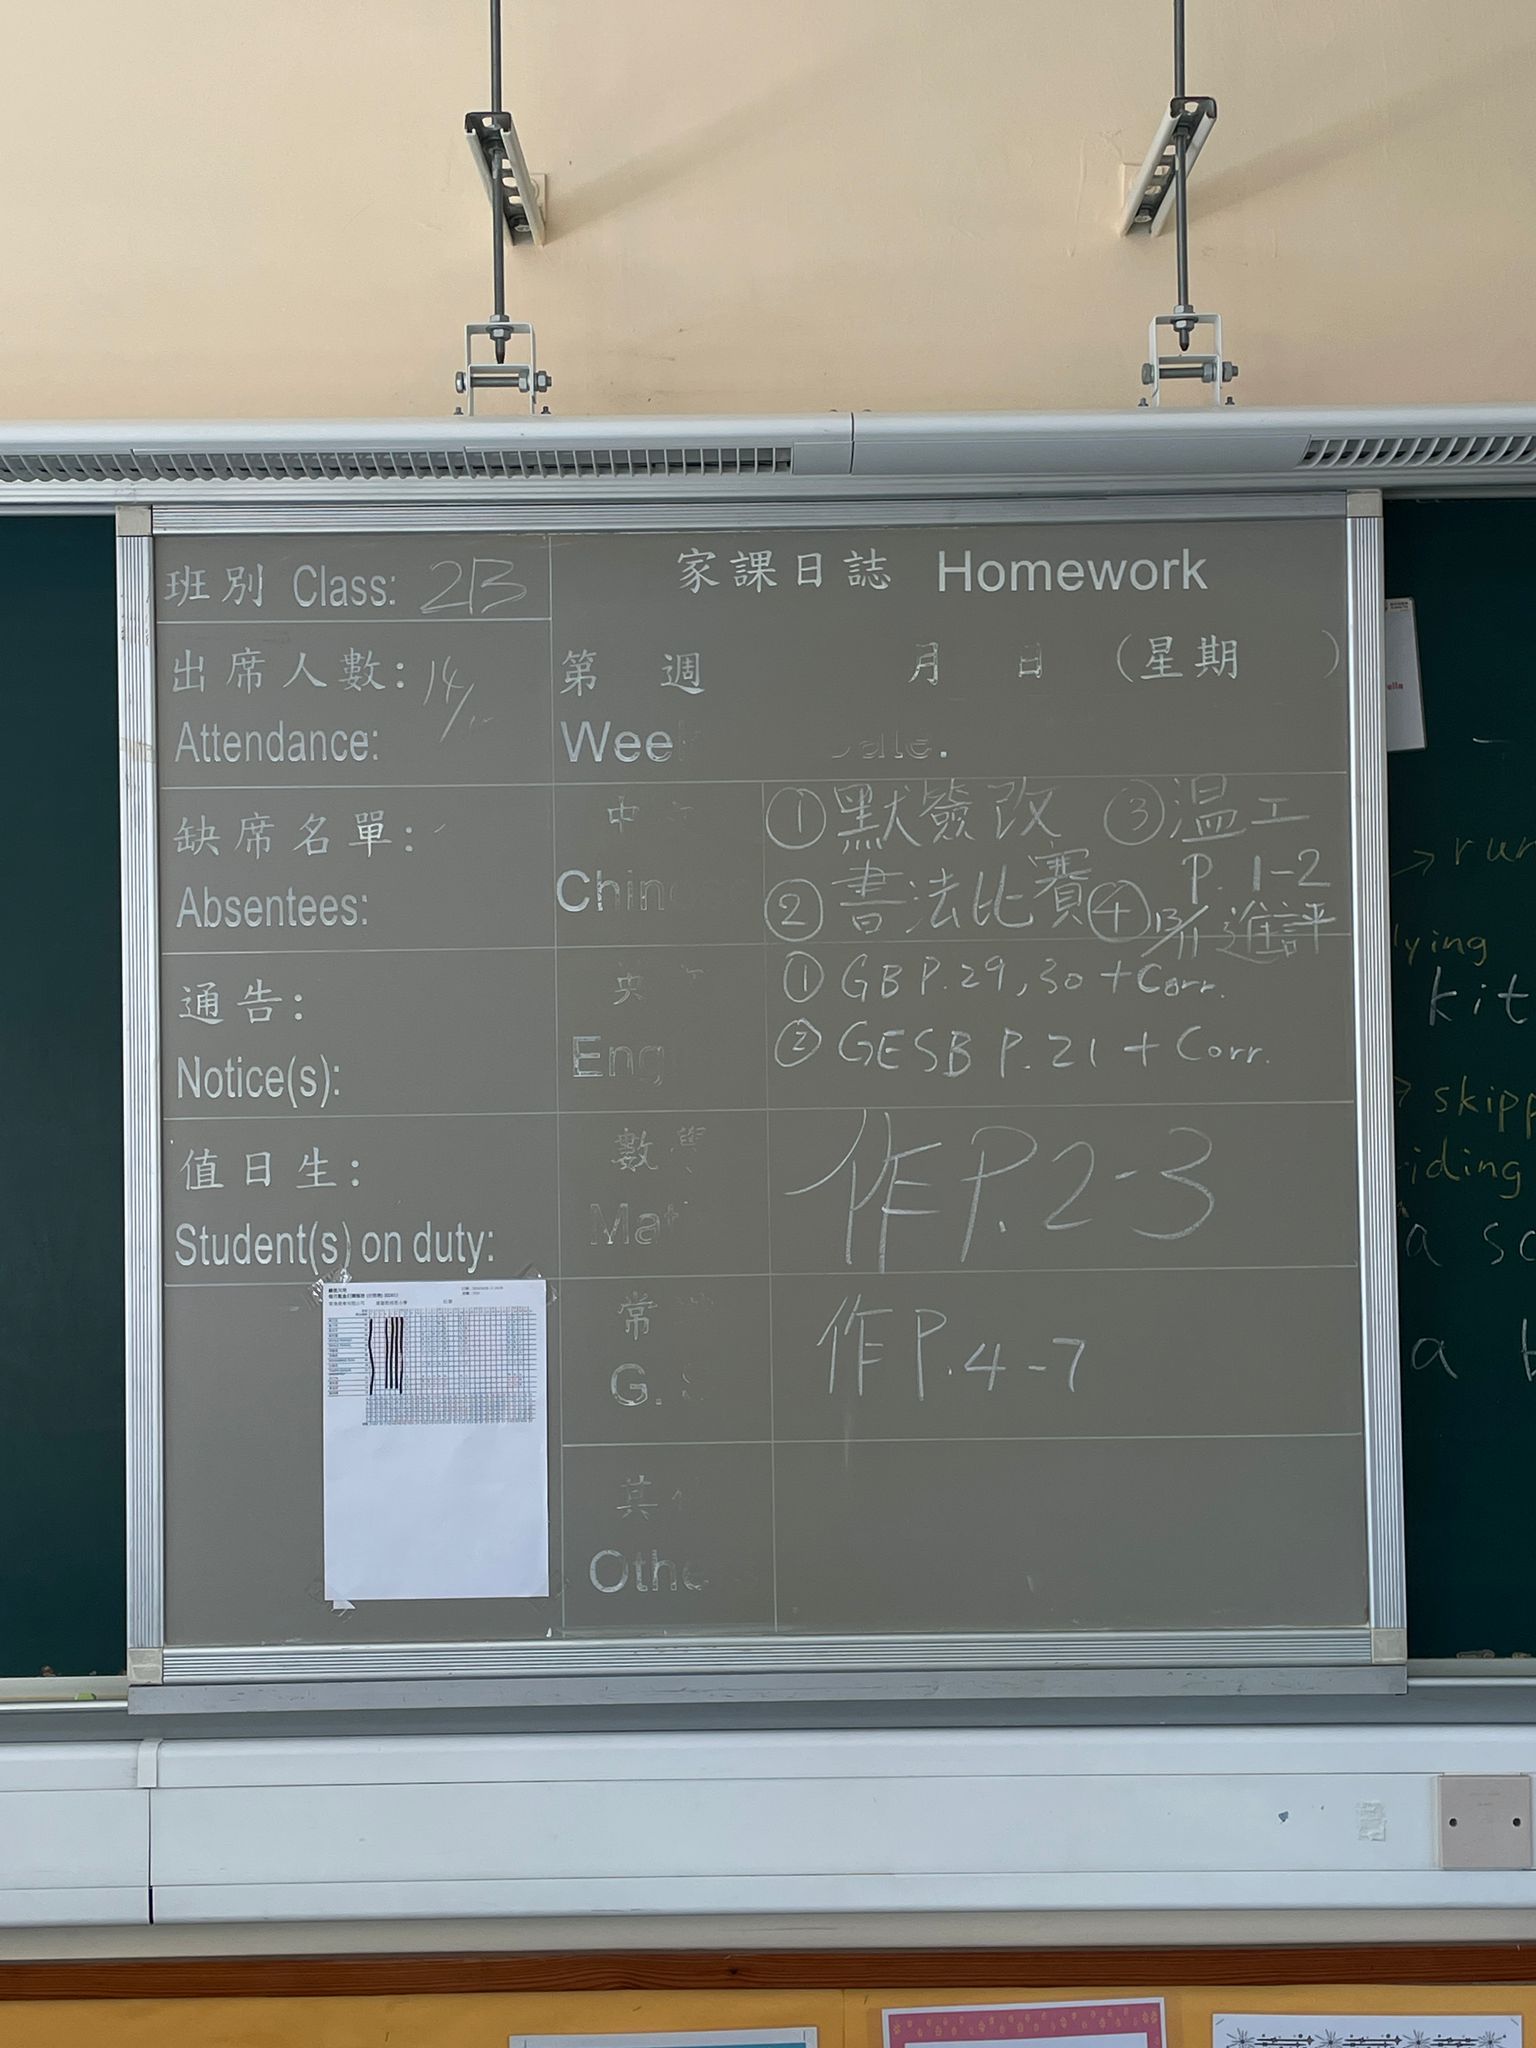 班別 Class: 2B
出席人數: 14/
Attendance:
缺席名單:
Absentees:
通告:
Notice(s):
值日生:
Student(s) on duty:
家課日誌 Homework
第 週 月 日 (星期 )
Wee
中
Chin
① 默簽改 ③ 温工
P. 1-2
② 書法比賽 ④ 13/11 進評
英
Eng
① GB P.29,30 + Corr.
② GESB P.21 + Corr.
數學
Mat
作 P.2-3
常
G.
作 P.4-7
其
Othe
run
lying
kit
skipp
iding
a sc
a b